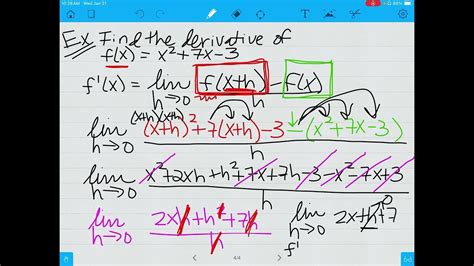 10:29 AM Wed Jan 31
Ex. Find the derivative of
f(x) = x² + 7x - 3
f'(x) = lim h→0 f(x+h) - f(x) / h
(x+h)(x+h)
lim h→0 (x+h)² + 7(x+h) - 3 - (x² + 7x - 3) / h
lim h→0 x² + 2xh + h² + 7x + 7h - 3 - x² - 7x + 3 / h
lim h→0 2xh + h² + 7h / h lim h→0 2x + h + 7
0
f'
4/4